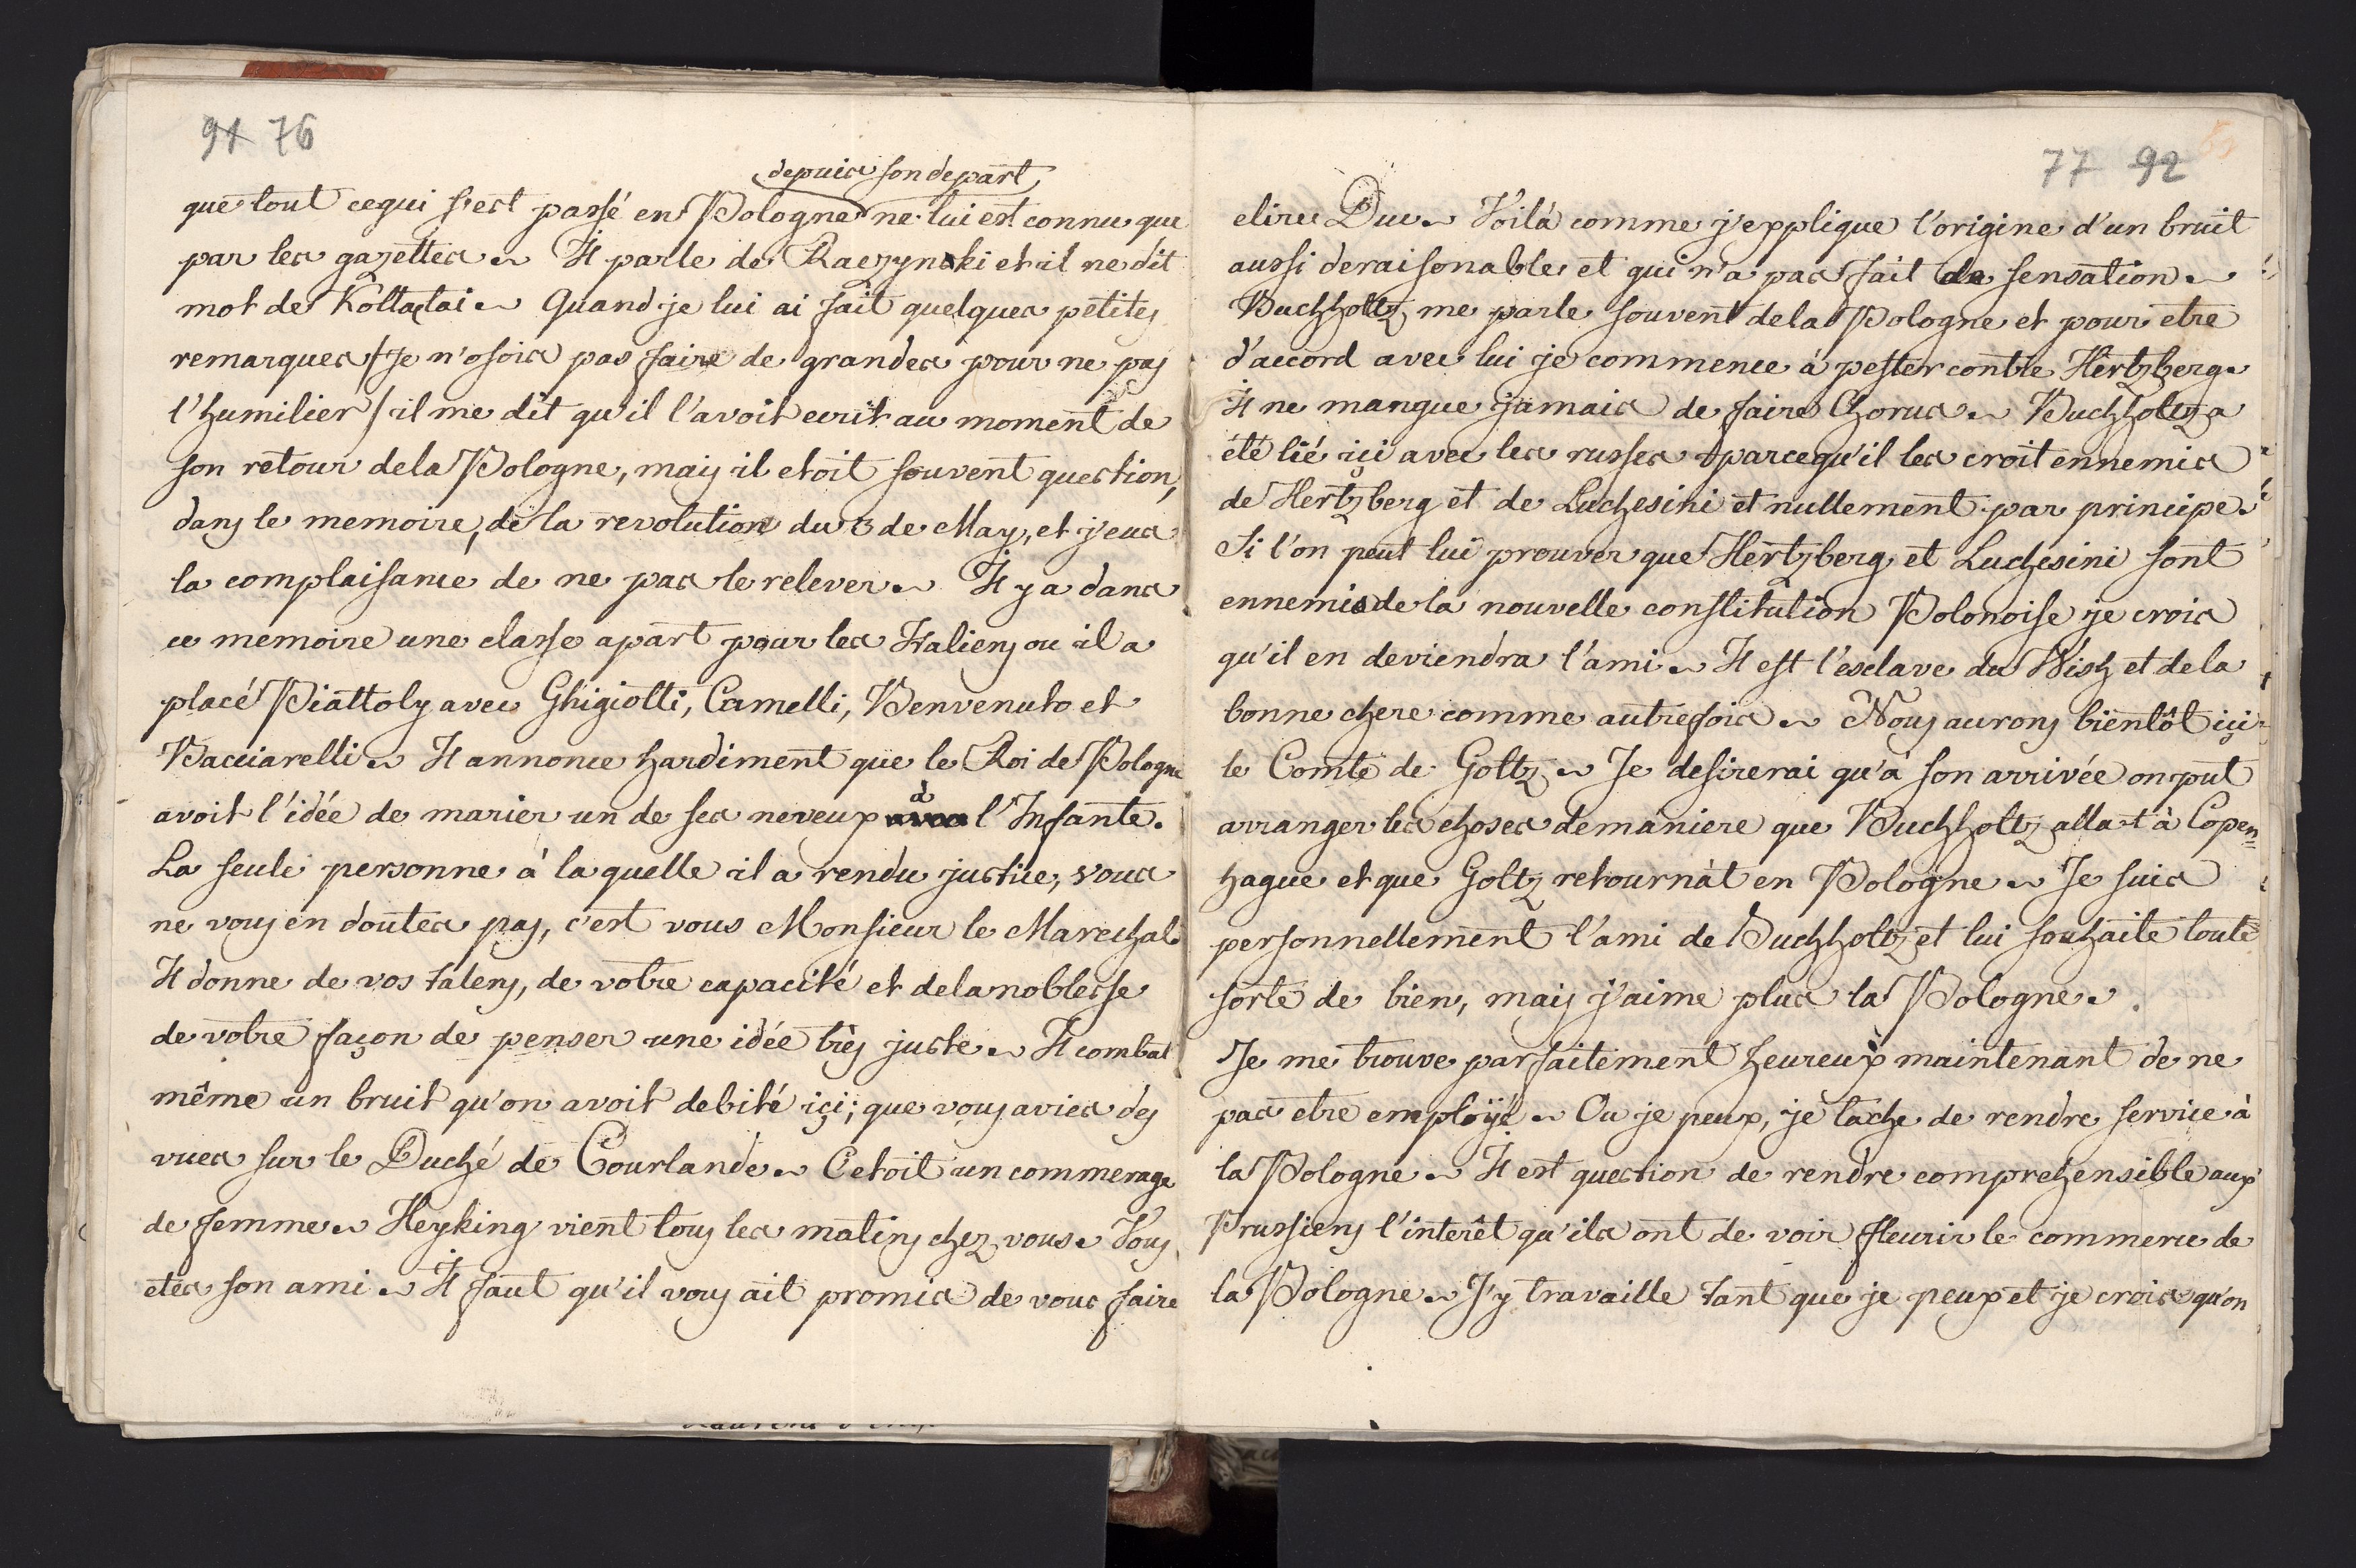 91 76
depuis son depart
que tout cequi s'est passé en Pologne ne lui est connu que
par les gazettes. Il parle de Raczynski et il ne dit
mot de Kollatai. Quand je lui ai fait quelques petites
remarques / Je n'osois pas faire de grandes pour ne pas
l'humilier / il me dit qu'il l'avoit ecrit au moment de
son retour dela Pologne, mais il etoit souvent question,
dans le memoire, de la revolution du 3 de May, et j'eus
la complaisance de ne pas le relever. Il y a dans
ce memoire une classe apart pour les Italiens ou il a
placé Piattoly avec Ghigiotti, Camelli, Benvenuto et
Bacciarelli. Il annonce hardiment que le Roi de Pologne
avoit l'idée de marier un de ses neveux à l'Infante.
La seule personne à la quelle il a rendu justice, vous
ne vous en doutes pas, c'est vous Monsieur le Marechal.
Il donne de vos talens, de votre capacité et dela noblesse
de votre façon de penser une idée très juste. Il combat
même un bruit qu'on avoit debité içi; que vous avies des
vues sur le Duché de Courlande. Cetoit un commerage
de femme. Heyking vient tous les matins chez vous. Vous
etes son ami. Il faut qu'il vous ait promis de vous faire
77 92
elire Duc. Voilà comme j'explique l'origine d'un bruit
aussi deraisonable et qui n'a pas fait de sensation.
Buchholtz me parle souvent dela Pologne et pour etre
d'accord avec lui je commence à pester contre Hertzberg.
Il ne manque jamais de faire Chorus. Buchholtz a
été lié ici avec les russes parcequ'il les croit ennemis
de Hertzberg et de Luchesini et nullement par principe.
Si l'on peut lui prouver que Hertzberg et Luchesini sont
ennemis de la nouvelle constitution Polonoise je crois
qu'il en deviendra l'ami. Il est l'esclave du Wish et dela
bonne chere comme autrefois. Nous aurons bientôt içi
le Comte de Goltz. Je desirerai qu'à son arrivée on put
arranger les choses demaniere que Buchholtz allat à Copen=
hague et que Goltz retournàt en Pologne. Je suis
personnellement l'ami de Buchholtz et lui souhaite toute
sorte de bien, mais j'aime plus la Pologne.
Je me trouve parfaitement heureux maintenant de ne
pas etre employé. Ou je peux, je tache de rendre service à
la Pologne. Il est question de rendre comprehensible aux
Prussiens l'interêt qu'ils ont de voir fleurir le commerce de
la Pologne. J'y travaille tant que je peux et je crois qu'on